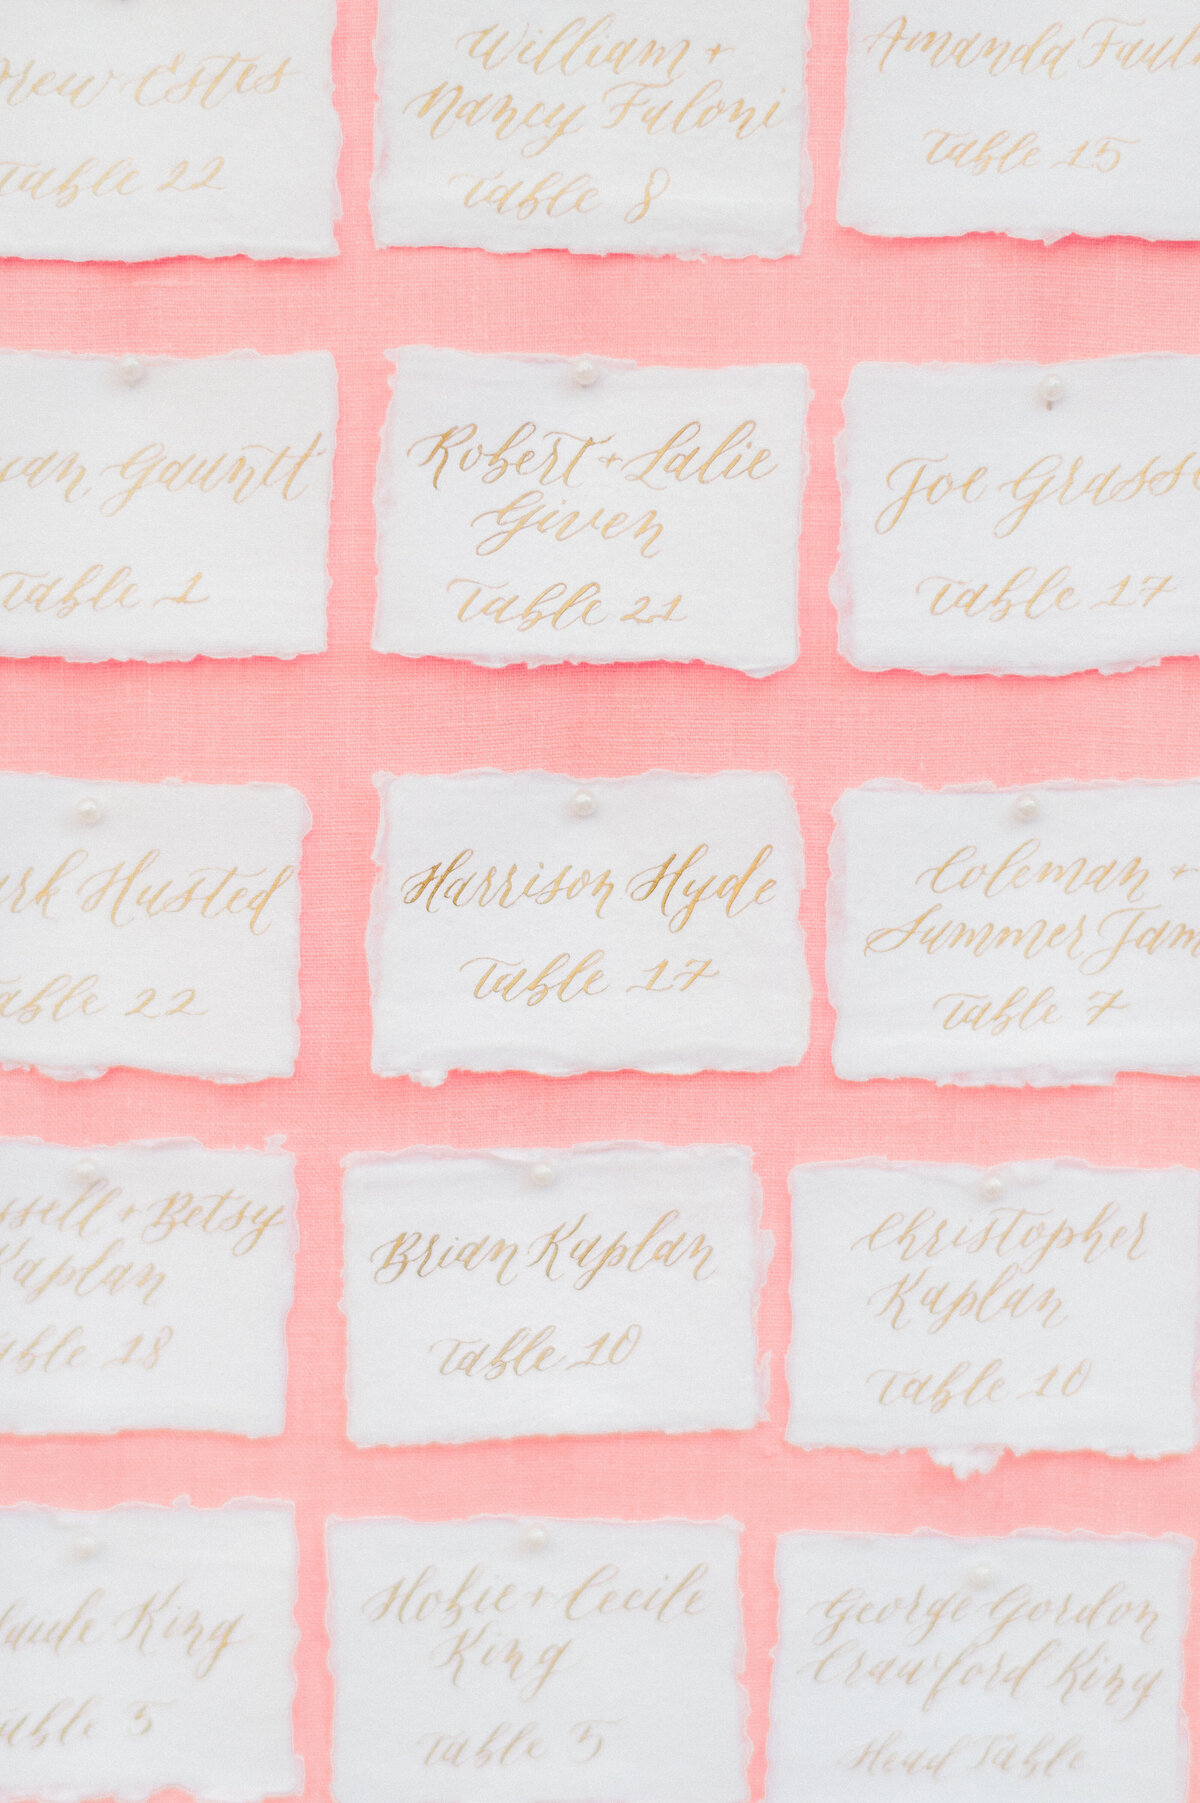 Estes
Table 22
William +
Nancy Faloni
Table 8
Amanda
Table 15
Gauntt
Table 1
Robert + Lalie
Given
Table 21
Joe
Table 17
Husted
Table 22
Harrison Hyde
Table 17
Coleman +
Summer
Table 7
+ Betsy
Kaplan
Table 18
Brian Kaplan
Table 10
Christopher
Kaplan
Table 10
King
Table 5
Hobie + Cecile
King
Table 5
George Gordon
Crawford King
Head Table